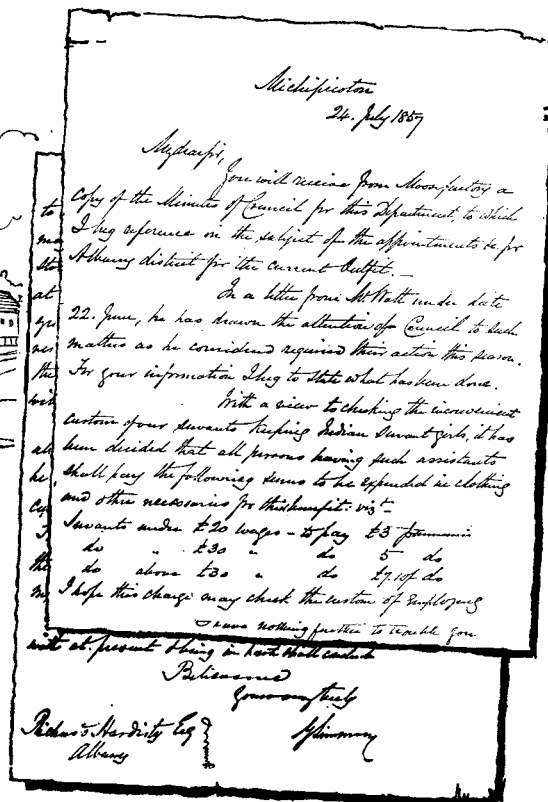 Michipicoton
24. July 1857
My dear Sir,
You will receive from Moose factory a
copy of the Minutes of Council for this Department, to which
I beg reference on the subject of the appointments &c for
Albany district for the current Outfit. —
In a letter from Mr Watt under date
22. June, he has drawn the attention of Council to such
matters as he considered required their action this season.
For your information I beg to state what has been done.
With a view to checking the inconvenient
custom of our servants keeping Indian servant girls, it has
been decided that all persons having such assistants
shall pay the following sums to be expended in clothing
and other necessaries for their benefit: vizt —
Servants under £20 wages - to pay £3 per annum
do " £30 " do 5 do
do above £30 " do £7.10/ do
I hope this charge may check the custom of Employing
nothing further to trouble you
with at present & being in haste shall conclude
Believe me
Yours very truly
Richard Hardisty Esq
Albany
to
at
the
all
he
the